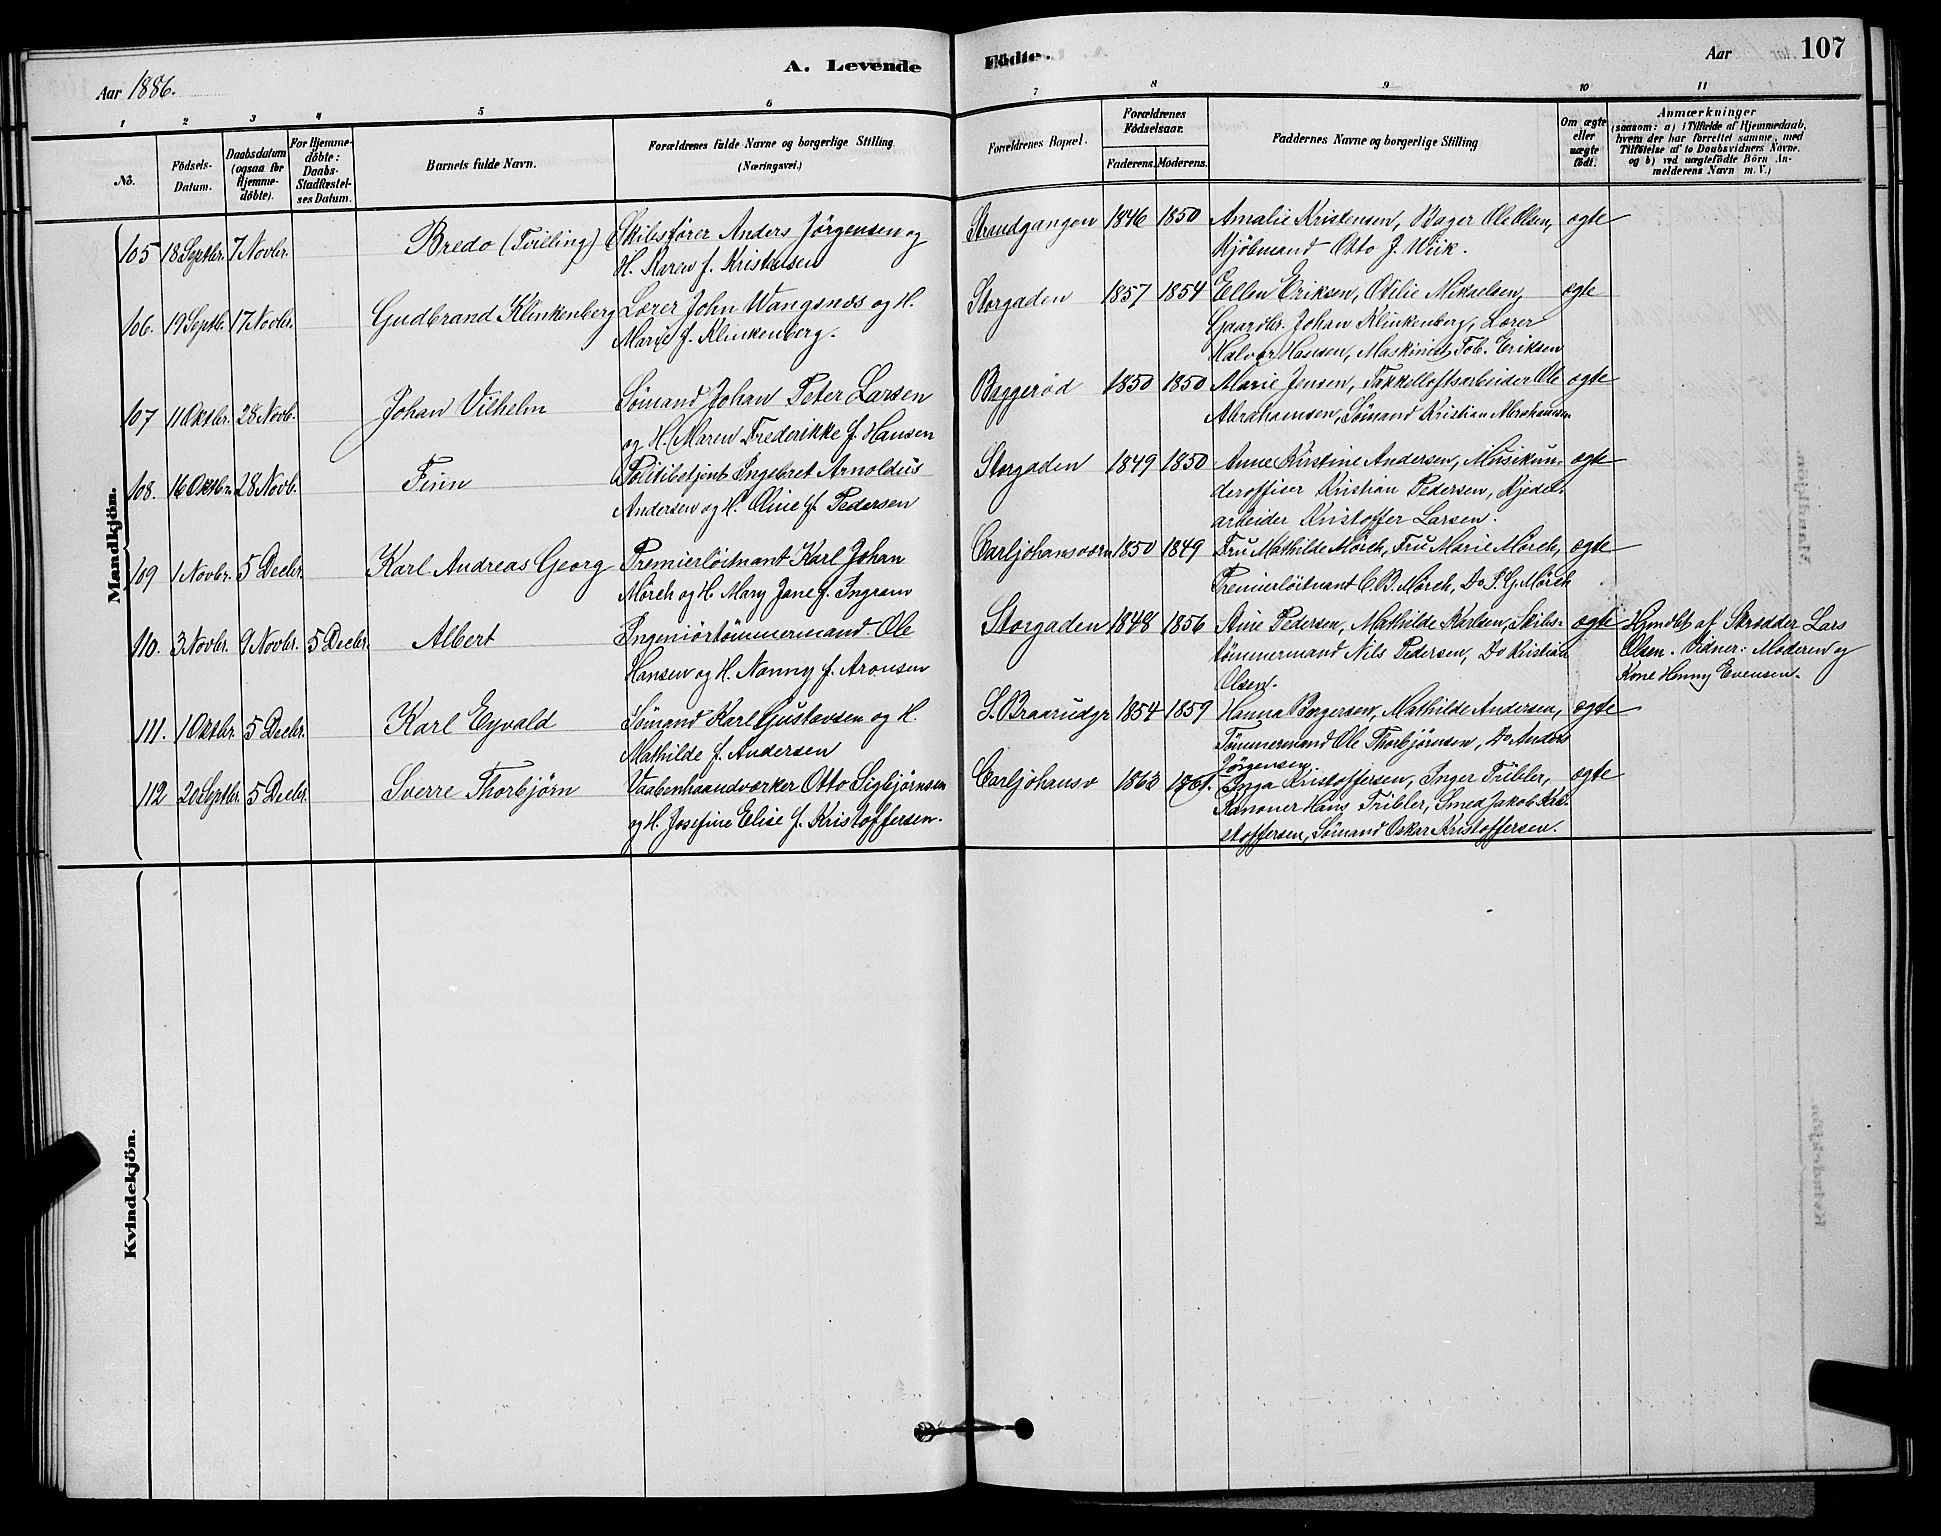 A. Levende Födte.
Aar 1886.
Aar 107
1 2 3 4 5 6 7 8 9 10 11
No.
Födsels-
Datum.
Daabsdatum
(ogsaa for
Hjemme-
döbte).
For Hjemme-
döbte:
Daabs-
Stadfæstel-
ses Datum.
Barnets fulde Navn.
Forældrenes fulde Navne og borgerlige Stilling
(Næringsvei.)
Forældrenes Bopæl.
Forældrenes
Födselsaar.
Faderens. Moderens.
Faddernes Navne og borgerlige Stilling
Om ægte
eller
uægte
födt.
Anmærkninger
(saasom: a) i Tilfælde af Hjemmedaab,
hvem der har forrettet samme, med
Tilföielse af to Daabsvidners Navne.
og b) ved uægtefödte Börn An-
melderens Navn m. V.)
Mandkjön.
105 18 Septbr. 7 Novbr. Bredo (Tvilling) Skibsfører Anders Jörgensen og
H. Karen f. Kristensen
Strandgangen 1846 1850 Amalie Kristensen, Bager Ole Olsen, ægte
Kjöbmand Otto J. Wiik.
106. 19 Septb. 17 Novbr. Gudbrand Klinkenberg Lærer John Wangsnes og H.
Marie f. Klinkenberg.
Storgaden 1857 1854 Ellen Eriksen, Otilie Mikaelsen, ægte
Gaardbr. Johan Klinkenberg, Lærer
Halvor Hansen, Maskinist Tob. Eriksen
107 11 Oktbr. 28 Novb. Johan Vilhelm Sömand Johan Peter Larsen
og H. Maren Frederikke f. Hansen
Baggeröd 1850 1850 Marie Jensen, Takkelloftsarbeider Ole ægte
Abrahamsen, Sömand Kristian Abrahamsen
108. 16 Oktbr. 28 Novb. Finn Politibetjent Ingebret Arnoldus
Andersen og H. Oline f. Pedersen
Storgaden 1849 1850 Anne Kirstine Andersen, Musikun- ægte
deroffiser Kristian Pedersen, Kjedel-
arbeider Kristoffer Larsen.
109 1 Novbr. 5 Decbr. Karl Andreas Georg Premierlöitnant Karl Johan
Mörch og H. Mary Jane f. Ingram
Carljohansværn 1850 1849 Fru Mathilde Mörch, Fru Marie Mörch, ægte
Premierlöitnant C. B. Mörch, Do P. G. Mörch
110. 3 Novbr. 9 Novbr. 5 Decbr. Albert Ingeniörtömmermand Ole
Hansen og H. Nanny f. Aronsen
Storgaden 1848 1856 Stine Pedersen, Mathilde Karlsen, Skibs- ægte
tömmermand Nils Pedersen, Do Kristian
Olsen.
Hjmdbt af Skrædder Lars
Olsen. Vidner: Moderen og
Kone Henny Evensen.
111. 1 Oktbr. 5 Decbr. Karl Eyvald Sömand Karl Gustavsen og H.
Mathilde f. Andersen
S. Braarudgr 1854 1859 Hanna Borgersen, Mathilde Andersen, ægte
Tömmermand Ole Thorbjörnsen, Do Anders
Jörgensen
112 20 Septbr. 5 Decbr. Sverre Thorbjörn Vaabenhaandværker Otto Sigbjörnsen
og H. Josefine Elise f. Kristoffersen.
Carljohansv 1863 1861. Inga Kristoffersen, Inger Tribler, ægte
Kanoner Hans Tribler, Smed Jakob Kri-
stoffersen, Sömand Oskar Kristoffersen.
Kvindekjön.